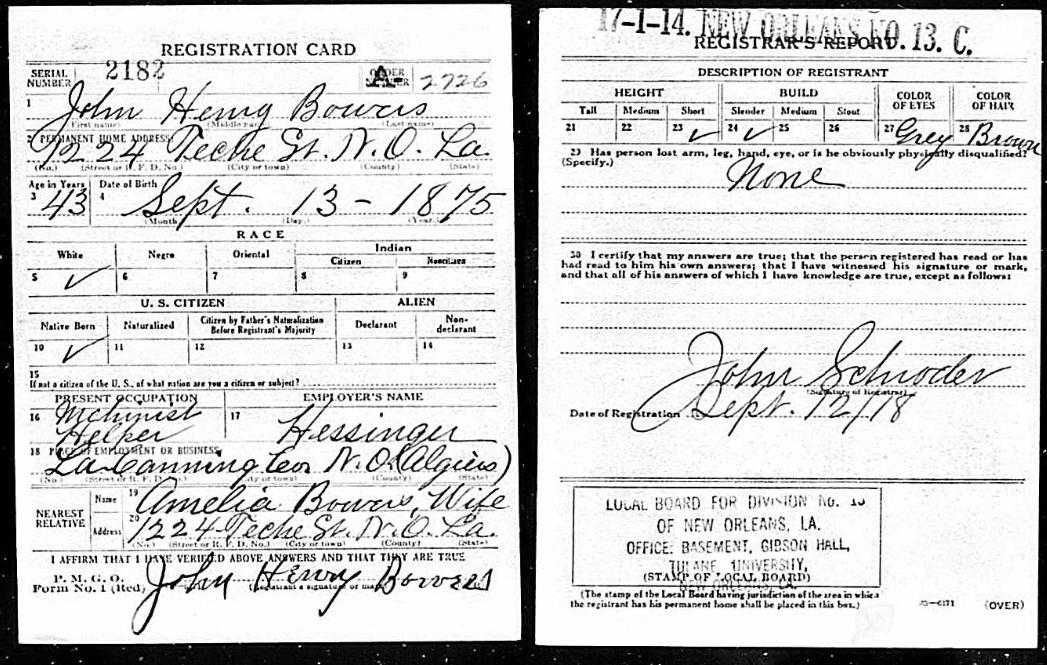 REGISTRATION CARD
SERIAL NUMBER 2182 ORDER NUMBER A- 2726
1 John Henry Bowers
(First name) (Middle name) (Last name)
2 PERMANENT HOME ADDRESS
1224 Teche St. N.O. La.
(No.) (Street or R. F. D. No.) (City or town) (County) (State)
Age in Years Date of Birth
3 43 4 Sept. 13 - 1875
(Month) (Day) (Year)
RACE
White Negro Oriental Indian
Citizen Noncitizen
5 ✓ 6 7 8 9
U. S. CITIZEN ALIEN
Native Born Naturalized Citizen by Father's Naturalization Before Registrant's Majority Declarant Non-declarant
10 ✓ 11 12 13 14
15
If not a citizen of the U. S., of what nation are you a citizen or subject?
PRESENT OCCUPATION EMPLOYER'S NAME
16 Mchinist Helper 17 Hessinger
18 PLACE OF EMPLOYMENT OR BUSINESS
La Canning N.O. (Algiers)
(No.) (Street or R. F. D. No.) (City or town) (County) (State)
NEAREST RELATIVE Name 19 Amelia Bowers, Wife
Address 20 1224 Teche St. N.O. La.
(No.) (Street or R. F. D. No.) (City or town) (County) (State)
I AFFIRM THAT I HAVE VERIFIED ABOVE ANSWERS AND THAT THEY ARE TRUE
P. M. G. O.
Form No. 1 (Red) John Henry Bowers
(Registrant's signature or mark)
17-1-14. NEW ORLEANS NO. 13. C.
REGISTRAR'S REPORT
DESCRIPTION OF REGISTRANT
HEIGHT BUILD COLOR OF EYES COLOR OF HAIR
Tall Medium Short Slender Medium Stout
21 22 23 ✓ 24 ✓ 25 26 27 Grey 28 Brown
29 Has person lost arm, leg, hand, eye, or is he obviously physically disqualified?
(Specify.)
None
30 I certify that my answers are true; that the person registered has read or has
had read to him his own answers; that I have witnessed his signature or mark,
and that all of his answers of which I have knowledge are true, except as follows:
John Schroder
(Signature of Registrar)
Date of Registration Sept. 12/18
LOCAL BOARD FOR DIVISION No. 13
OF NEW ORLEANS, LA.
OFFICE: BASEMENT, GIBSON HALL,
TULANE UNIVERSITY,
(STAMP OF LOCAL BOARD)
NEW ORLEANS, LA.
(The stamp of the Local Board having jurisdiction of the area in which
the registrant has his permanent home shall be placed in this box.)
(OVER)